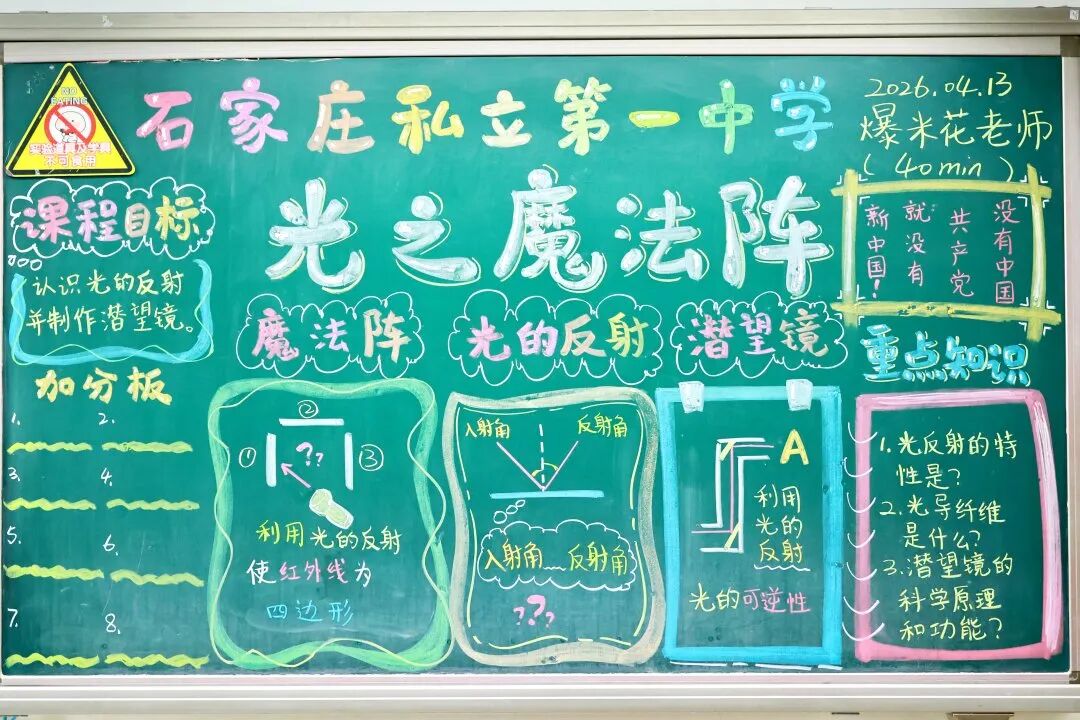 NO
EATING
实验道具及学具
不可食用
石家庄私立第一中学
2026.04.13
爆米花老师
(40min)
光之魔法阵
没有中国
共产党
就没有
新中国!
课程目标
认识光的反射
并制作潜望镜。
加分板
1. 2.
3. 4.
5. 6.
7. 8.
魔法阵
①
②
③
??
利用光的反射
使红外线为
四边形
光的反射
入射角 反射角
入射角……反射角
???
潜望镜
A
利用
光的
反射
光的可逆性
重点知识
1.光反射的特
性是?
2.光导纤维
是什么?
3.潜望镜的
科学原理
和功能?